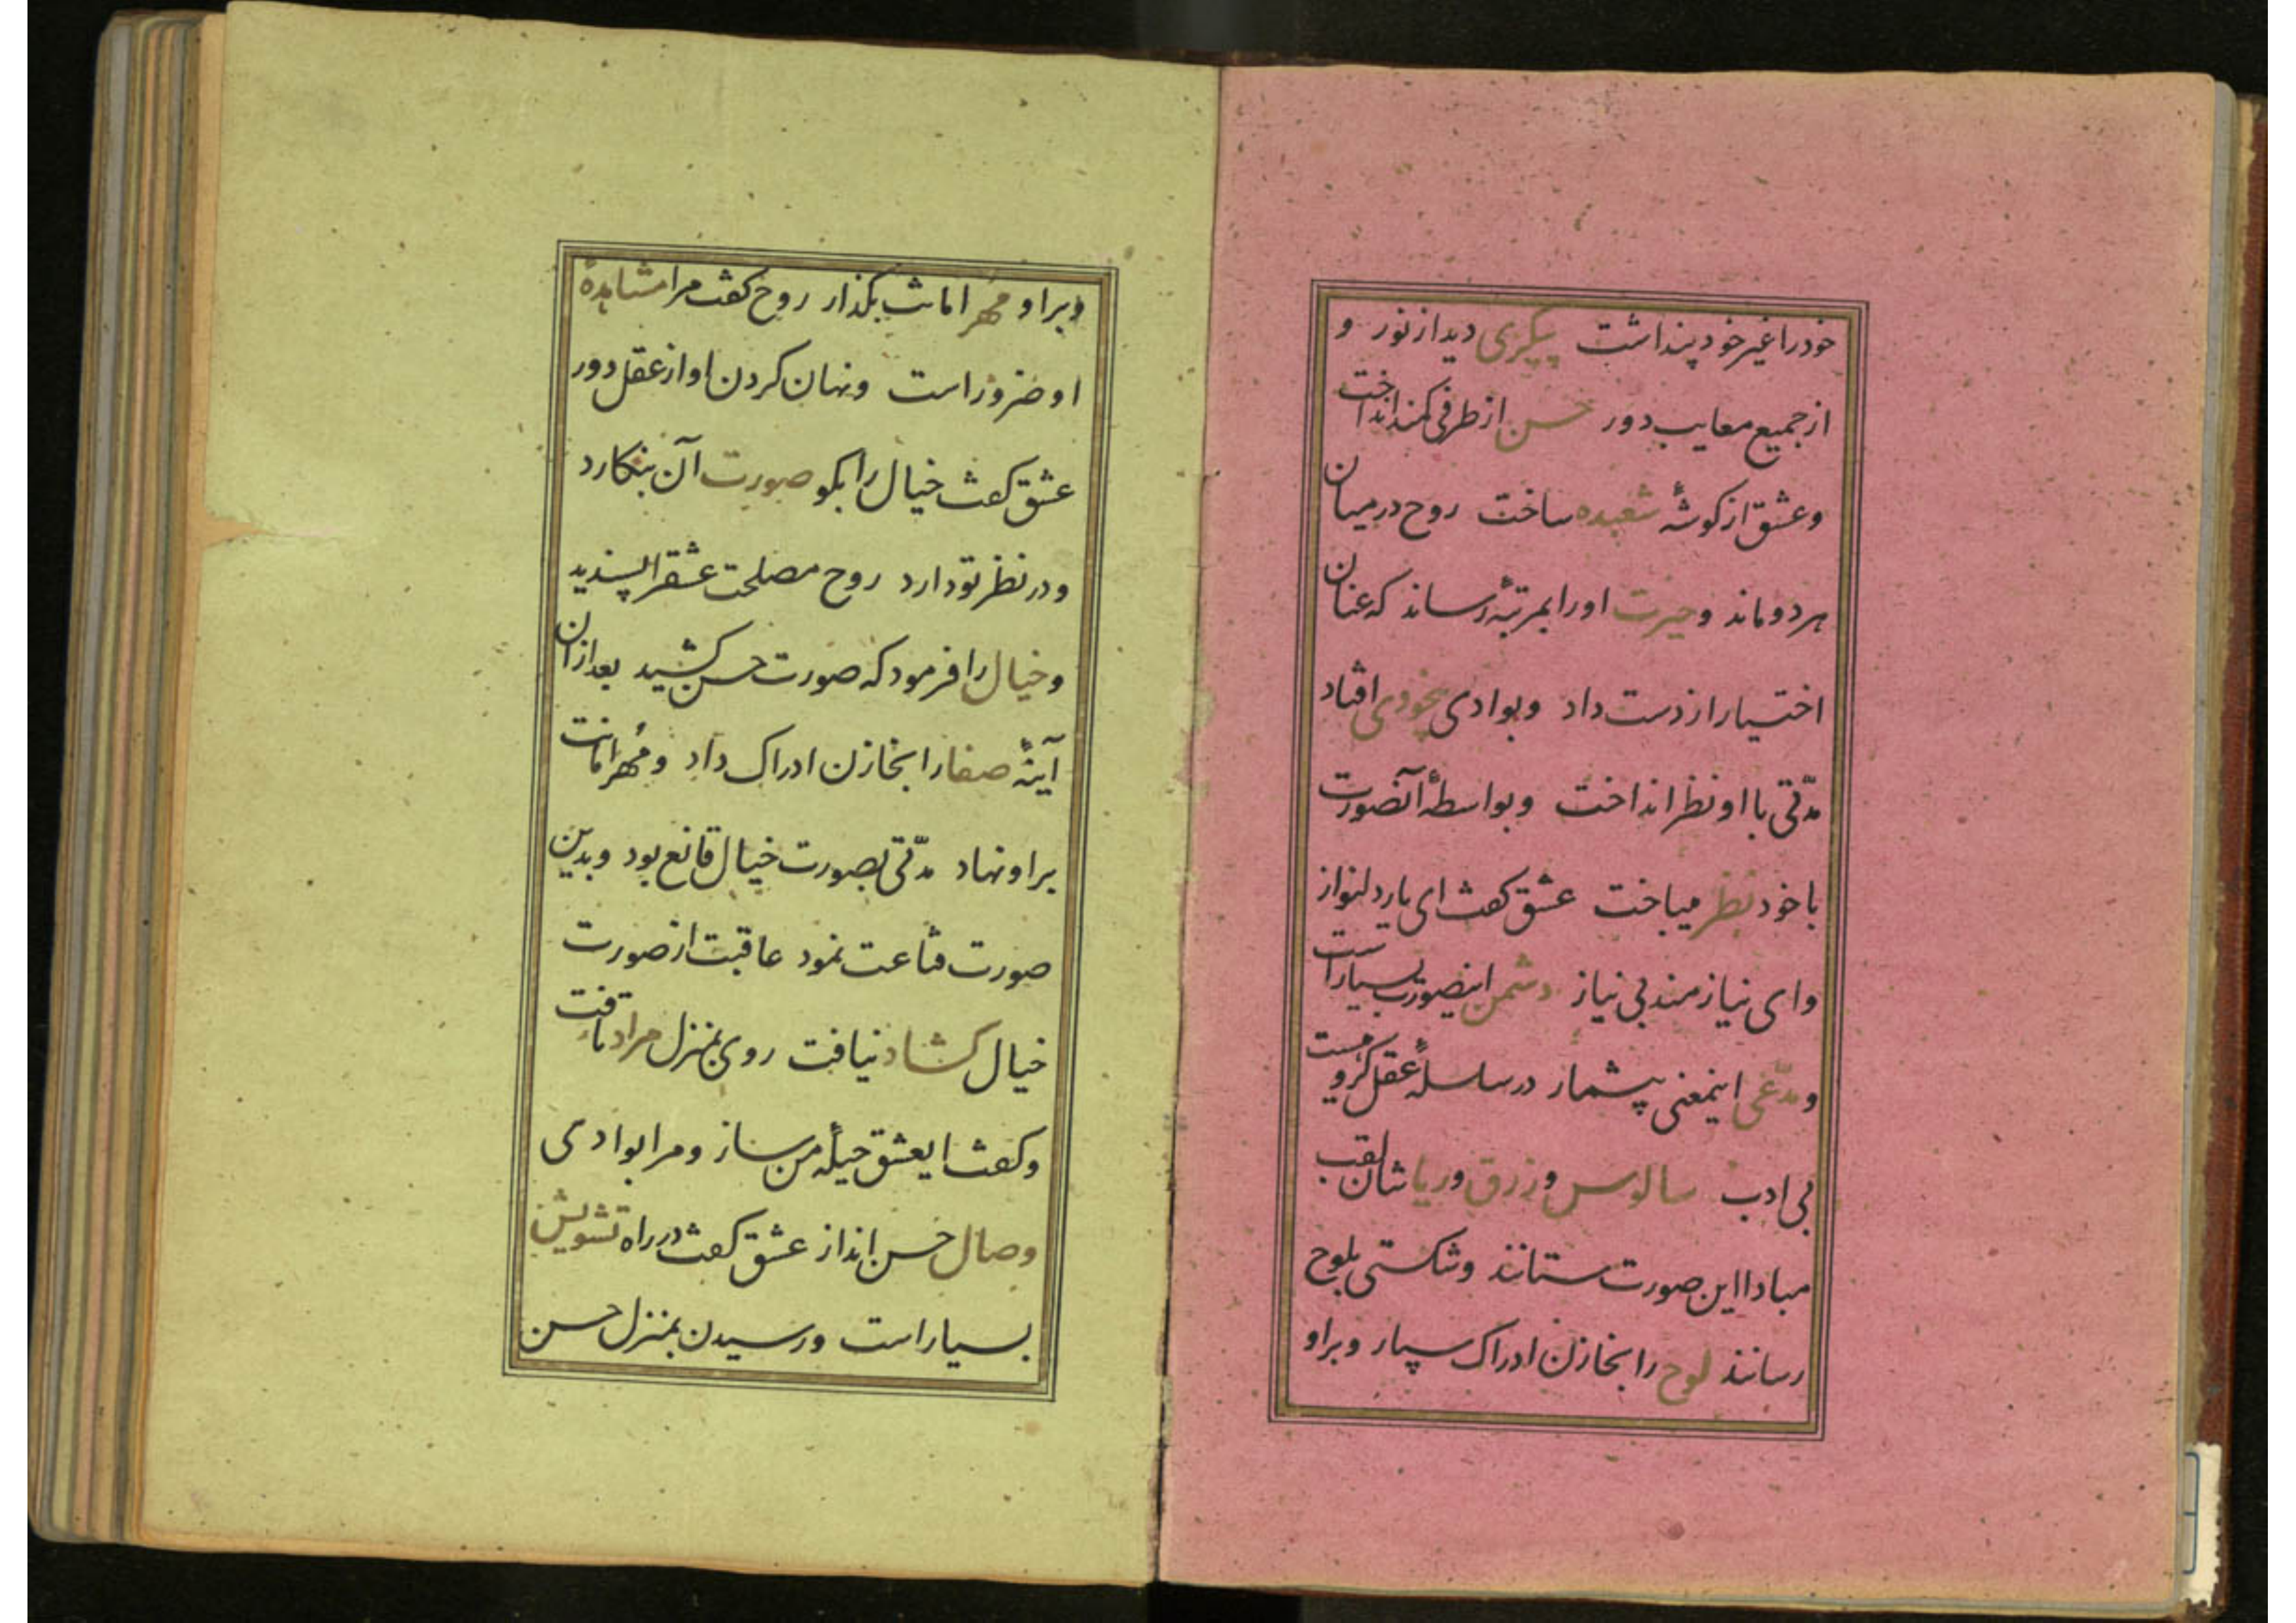 خودرا غیر خود پنداشت پیکری دید از نور و
از جمیع معایب دور حسن از طرفی کمند انداخت
و عشق از کوشهٔ شعبده ساخت روح در میان
هر دو ماند و حیرت اورا بمرتبهٔ رساند که عنان
اختیار از دست داد و بوادی بیخودی افتاد
مدّتی با او نظر انداخت و بواسطهٔ آنصورت
با خود نظر میباخت عشق کفت ای یار دلنواز
و ای نیازمند بی نیاز دشمن اینصورت بسیار است
و مدّعی اینمعنی بیشمار در سلسلهٔ عقل کروهیست
بی ادب سالوس و زرق و ریا شان لقب
مبادا این صورت ستانند و شکستی بلوح
رسانند لوح را بخازن ادراک سپار و براو
وبراو مهر امانت بکذار روح کفت مرا مشاهدهٔ
او ضرور است و نهان کردن او از عقل دور
عشق کفت خیال را بکو صورت آن بنکارد
و در نظر تو دارد روح مصلحت عشقرا پسندید
و خیال را فرمود که صورت حسن کشید بعد ازان
آینهٔ صفا را بخازن ادراک داد و مُهر امانت
براو نهاد مدّتی بصورت خیال قانع بود و بدین
صورت قناعت نمود عاقبت از صورت
خیال کشاد نیافت روی بمنزل مراد تافت
و کفت ایعشق حیلهٔ من ساز و مرا بوادی
وصال حسن انداز عشق کفت در راه تشویش
بسیار است و رسیدن بمنزل حسن